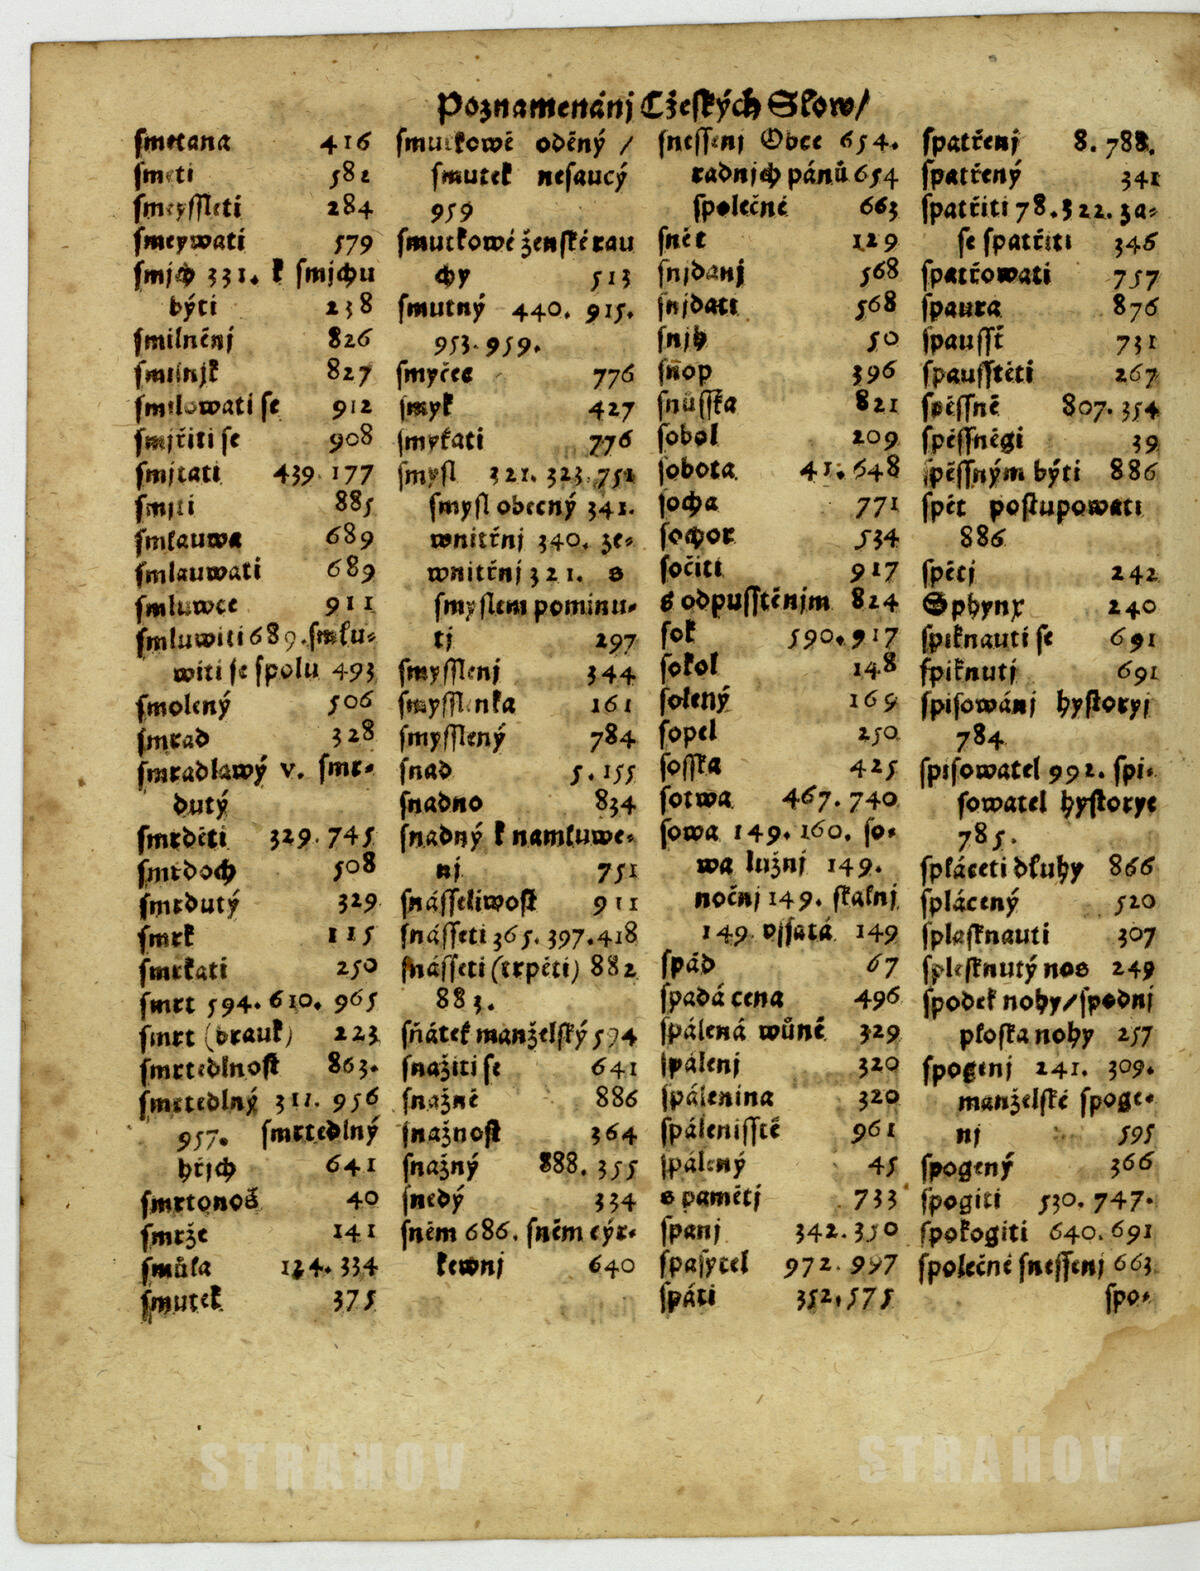 Poznamenánj Cžeských Slow/
smetana 416
smeti 582
smeyssleti 284
smeywati 579
smjch 331. k smjchu
býti 238
smilněnj 826
smilnjk 827
smilowati se 912
smjřiti se 908
smjtati 439. 177
smjti 885
smlauwa 689
smlauwati 689
smluwce 911
smluwiti 689. smlu-
witi se spolu 493
smolený 506
smrad 328
smradlawý v. smr-
dutý
smrděti 329. 745
smrdoch 508
smrdutý 329
smrk 115
smrkati 250
smrt 594. 610. 965
smrt (drauk) 223
smrtedlnost 863.
smrtedlný 311. 956
957. smrtedlný
hřjch 641
smrtonoš 40
smrže 141
smůla 124. 334
smutek 375
smutkowě oděný /
smutek nesaucý
959
smutkowé ženské rau
chy 513
smutný 440. 915.
953. 959.
smyčec 776
smyk 427
smykati 776
smysl 321. 323. 751
smysl obecný 341.
wnitřnj 340. ze-
wnitřnj 321. s
smyslem pominu-
tj 297
smysslenj 344
smysslenka 161
smysslený 784
snad 5. 155
snadno 834
snadný k namluwe-
nj 751
snásseliwost 911
snásseti 365. 397. 418
snásseti (trpěti) 882
883.
sňátek manželský 594
snažiti se 641
snažně 886
snažnost 364
snažný 888. 355
snedý 334
sněm 686. sněm cýr-
kewnj 640
snessenj Obce 654.
radnjch pánů 654
společné 663
snět 129
snjdanj 568
snjdati 568
snjh 50
snop 396
snůsska 821
sobol 209
sobota 41. 648
socha 771
sochor 534
sočiti 917
s odpusstěnjm 824
sok 590. 917
sokol 148
solený 169
sopel 250
sosska 425
sotwa 467. 740
sowa 149. 160. so-
wa lužnj 149.
nočnj 149. skalnj
149. vssatá 149
spád 67
spadá cena 496
spálená wůně 329
spálenj 320
spálenina 320
spálenisstě 961
spálený 45
s pamětj 733
spanj 342. 350
spasytel 972. 997
spáti 352. 575
spatřenj 8. 788.
spatřený 341
spatřiti 78. 322. za-
se spatřiti 346
spatřowati 757
spaura 876
spausst 731
spausstěti 267
spěssně 807. 354
spěssněgi 39
spěssným býti 886
spět postupowati
886
spětj 242
Sphynx 240
spiknauti se 691
spiknutj 691
spisowánj hystoryj
784
spisowatel 992. spi-
sowatel hystorye
785.
spláceti dluhy 866
splácený 520
splasknauti 307
splesknutý nos 249
spodek nohy/spodnj
ploska nohy 257
spogenj 241. 309.
manželské spoge-
nj 595
spogený 366
spogiti 530. 747.
spokogiti 640. 691
společné snessenj 663
spo-
STRAHOV
STRAHOV